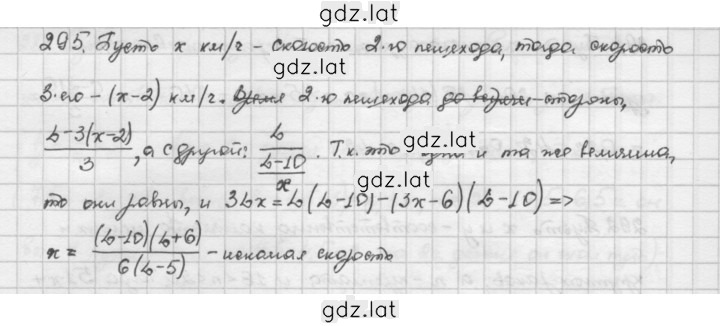 gdz.lat
295. Пусть x км/г - скорость 2-го пешехода, тогда скорость
gdz.lat
3-его - (x-2) км/г. Время 2-го пешехода до стороны,
gdz.lat
(b-3(x-2))/3, а с другой: b/((b-10)/x). Т.к. это и та же величина,
gdz.lat
то они равны, и 3bx = b(b-10) - (3x-6)(b-10) =>
gdz.lat
x = (b-10)(b+6)/6(b-5) - искомая скорость
gdz.lat